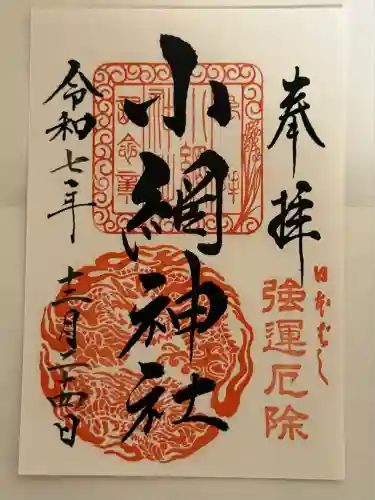 奉拝
日本ばし
強運厄除
小網神社
令和七年
十二月二十四日